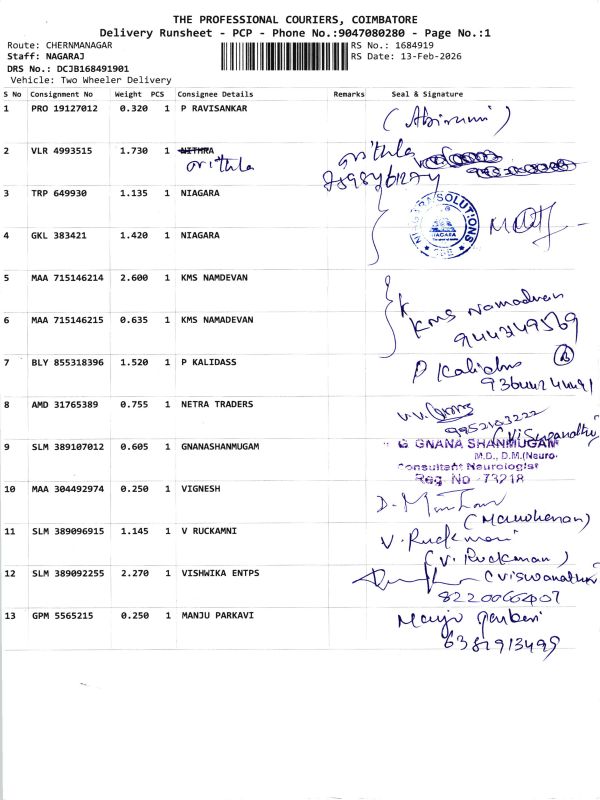 THE PROFESSIONAL COURIERS, COIMBATORE
Delivery Runsheet - PCP - Phone No.:9047080280 - Page No.:1
Route: CHERNMANAGAR RS No.: 1684919
Staff: NAGARAJ RS Date: 13-Feb-2026
DRS No.: DCJB168491901
Vehicle: Two Wheeler Delivery
S No Consignment No Weight PCS Consignee Details Remarks Seal & Signature
1 PRO 19127012 0.320 1 P RAVISANKAR (Abirami)
2 VLR 4993515 1.730 1 NITHRA
3 TRP 649930 1.135 1 NIAGARA
NIAGARA SOLUTIONS
NIAGARA
CBE
4 GKL 383421 1.420 1 NIAGARA
5 MAA 715146214 2.600 1 KMS NAMDEVAN
KMS Namadevan
6 MAA 715146215 0.635 1 KMS NAMADEVAN
7 BLY 855318396 1.520 1 P KALIDASS
P Kalidass
8 AMD 31765389 0.755 1 NETRA TRADERS
9952103222
(Viswanathn)
9 SLM 389107012 0.605 1 GNANASHANMUGAM
G GNANA SHANMUGAM
M.D., D.M.(Neuro.
Consultant Neurologist
Reg. No 73218
10 MAA 304492974 0.250 1 VIGNESH
(Manoharan)
11 SLM 389096915 1.145 1 V RUCKAMNI
V. Ruckmani
(V. Ruckmani)
12 SLM 389092255 2.270 1 VISHWIKA ENTPS
(Viswanathn
13 GPM 5565215 0.250 1 MANJU PARKAVI
Manju Parkavi
6382913499